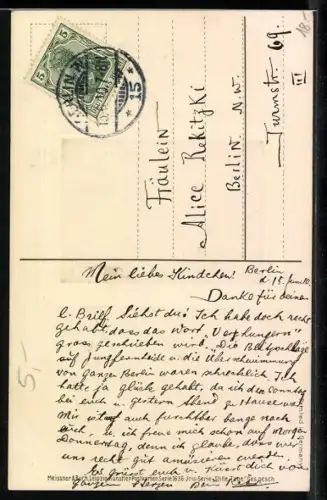 Fräulein
Alice Rekitzki
Berlin N.W.
Turmstr. 69.
III
18-
5
5
BERLIN
* 15 *
Mein liebes Kindchen!
Berlin
d 15. Juni 10.
Danke für deinen
l. Brief. Siehst du! Ich habe doch recht
gehabt, dass das Wort „Verhungern"
gross geschrieben wird. Die Blitzschläge
auf Jungfernheide u. die Überschwemmung
von ganz Berlin waren schrecklich. Ich
hatte ja Glück gehabt, da ich den Sonntag
bei euch u. gestern Abend zu Hause war
Mir ist auch furchtbar bange nach
dich, u. ich freue mich schon auf morgen
Donnerstag, denn ich glaube, dass wir
uns recht gut amüsieren werden.
Es grüsst euch u. küsst dich von
ganzem Herzen Dein
5.-
Meissner & Buch, Leipzig Künstler-Postkarten Serie 1836 Stille Tage Ges. gesch.